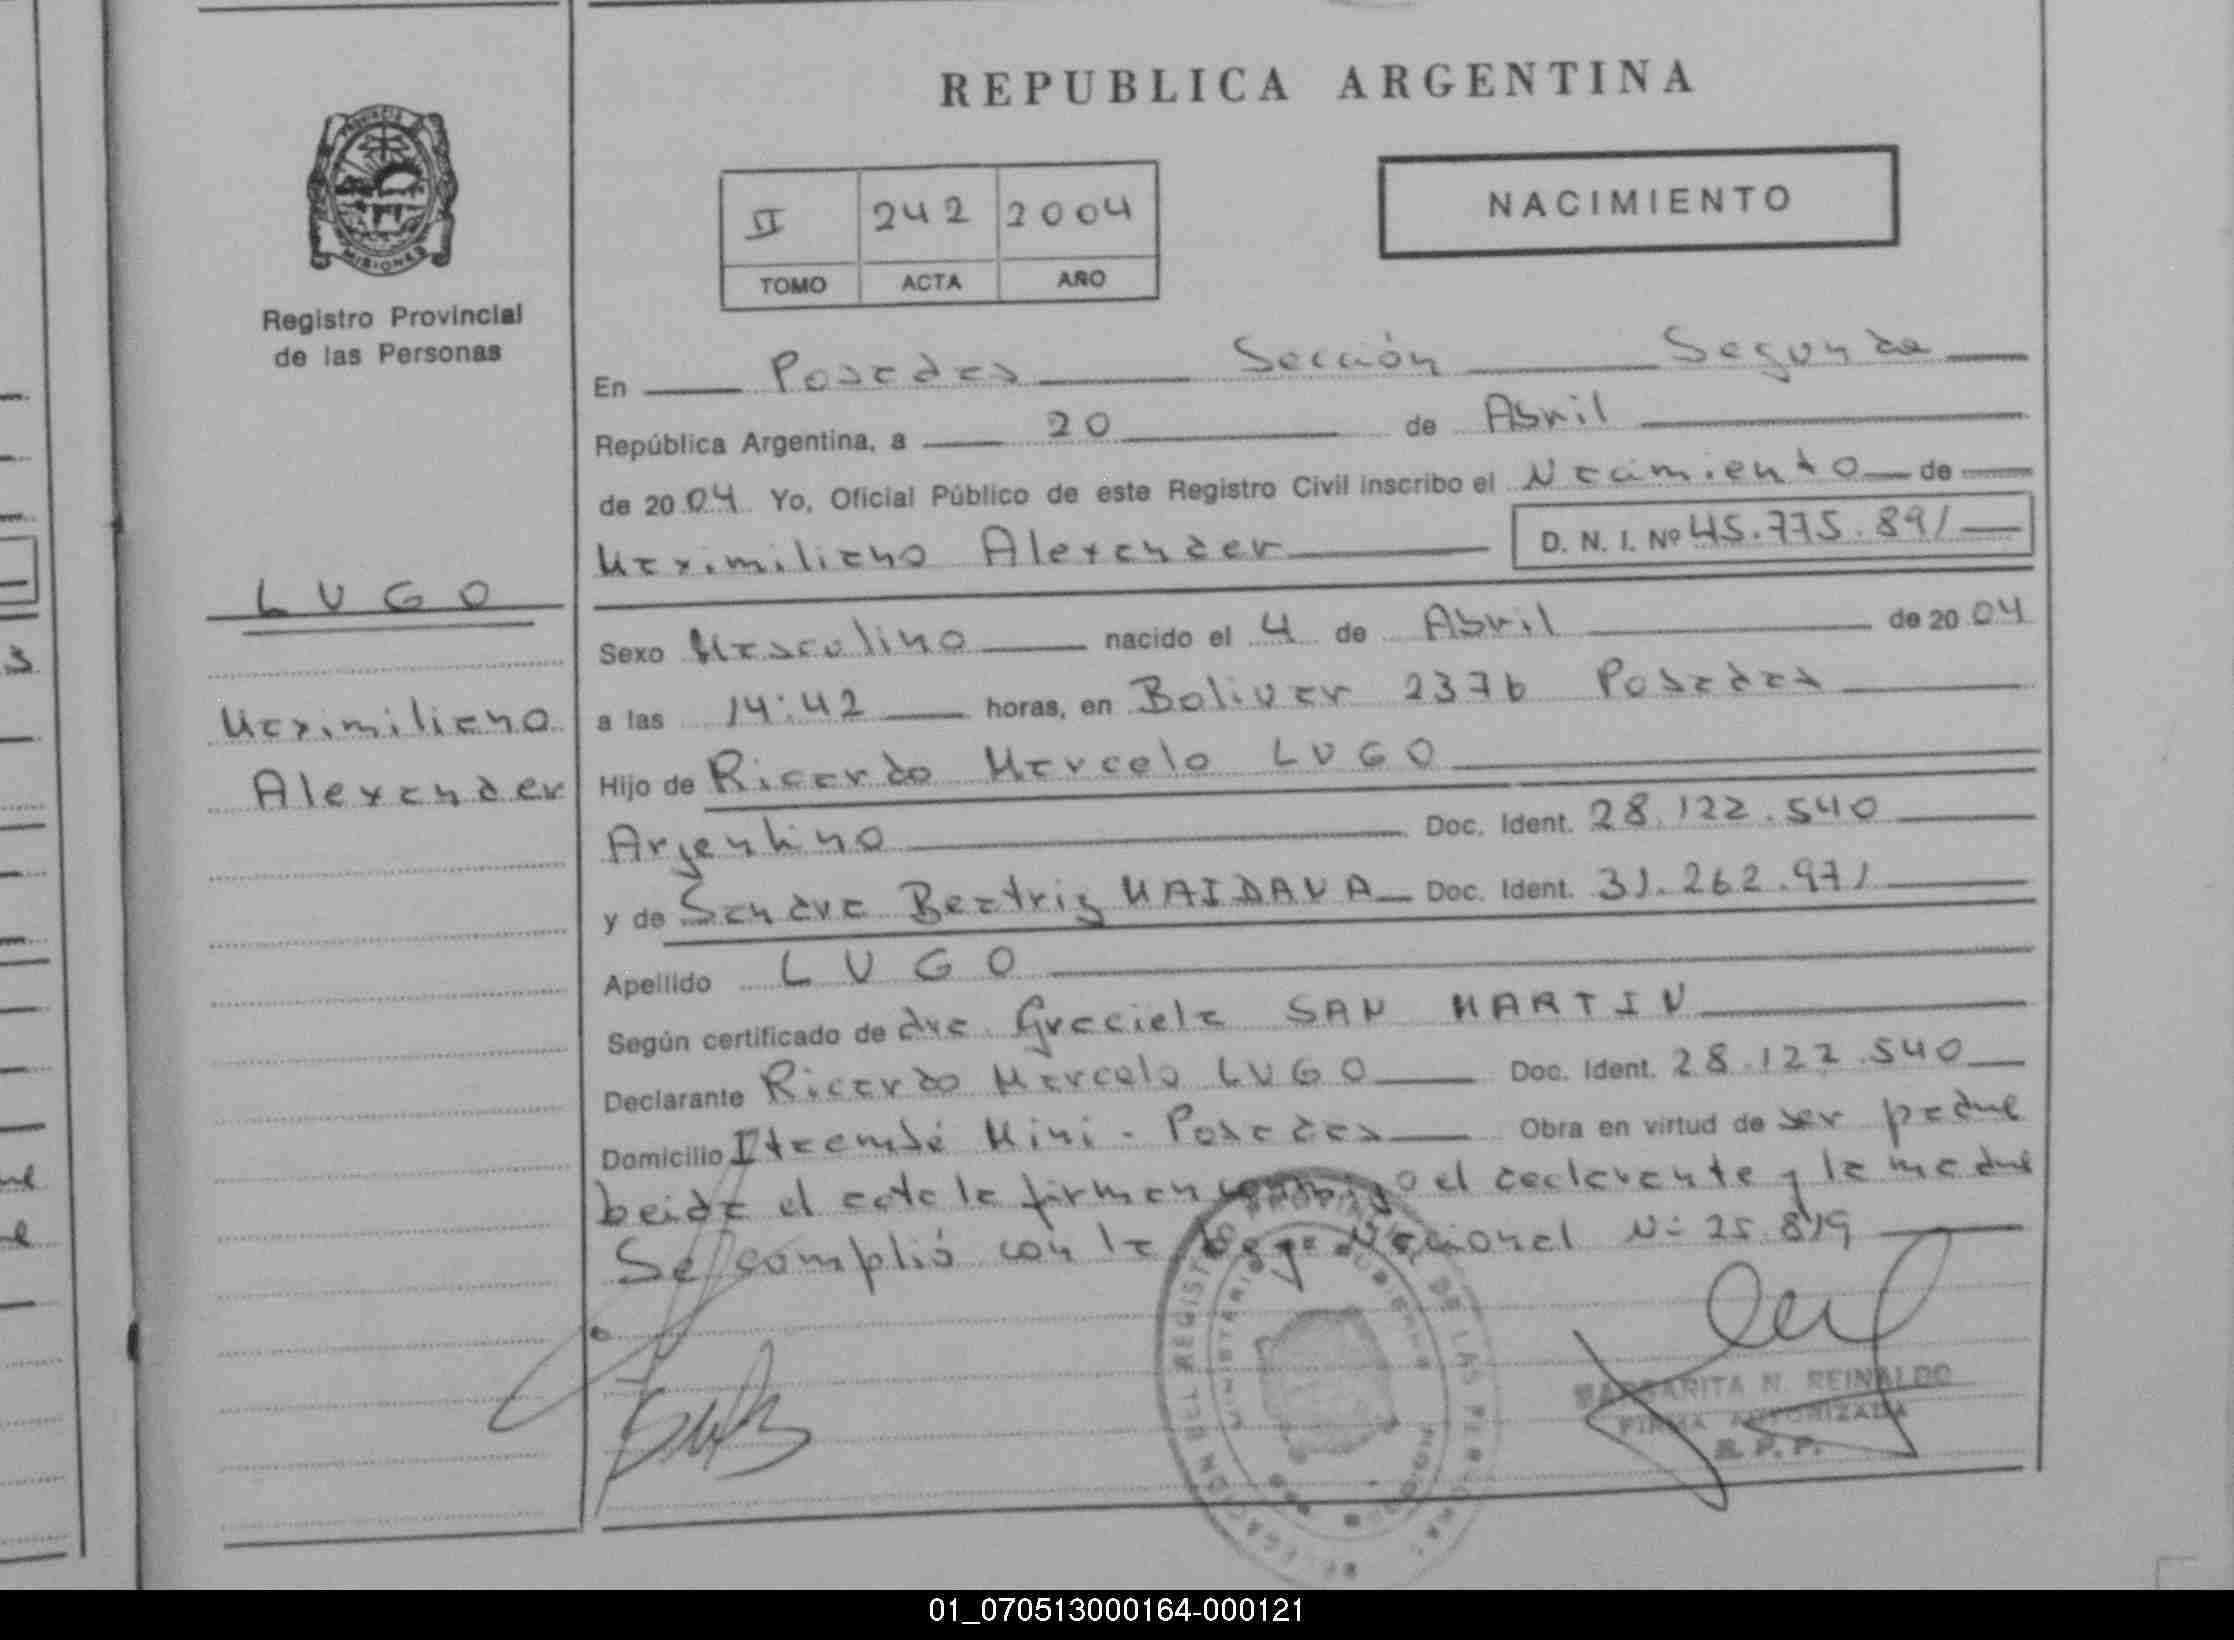 REPUBLICA ARGENTINA
PROVINCIA DE
MISIONES
Registro Provincial
de las Personas
II 242 2004
TOMO ACTA AÑO
NACIMIENTO
En Posadas Sección Segunda
República Argentina, a 20 de Abril
de 2004 Yo, Oficial Público de este Registro Civil inscribo el Nacimiento de
Maximiliano Alexander D. N. I. Nº 45.775.891
LUGO
Maximiliano
Alexander
Sexo Masculino nacido el 4 de Abril de 2004
a las 14:42 horas, en Bolivar 2376 Posadas
Hijo de Ricardo Marcelo LUGO
Argentino Doc. Ident. 28.122.540
y de Sandra Beatriz MAIDANA Doc. Ident. 31.262.971
Apellido LUGO
Según certificado de dra Graciela SAN MARTIN
Declarante Ricardo Marcelo LUGO Doc. Ident. 28.122.540
Domicilio Itaembé Mini - Posadas Obra en virtud de ser padre
Leida el acta la firman conmigo el declarante y la madre
Se complió con la Ley Nacional Nº 25.819
DELEGACION DEL REGISTRO PROVINCIAL DE LAS PERSONAS
MINISTERIO GOBIERNO
MARGARITA N. REINALDO
FIRMA AUTORIZADA
R. P. P.
01_070513000164-000121